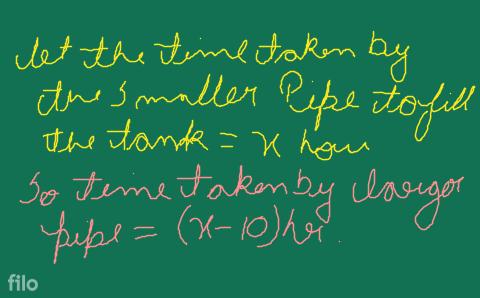 let the time taken by
the smaller Pipe to fill
the tank = x hour
So time taken by larger
pipe = (x-10)hr.
filo